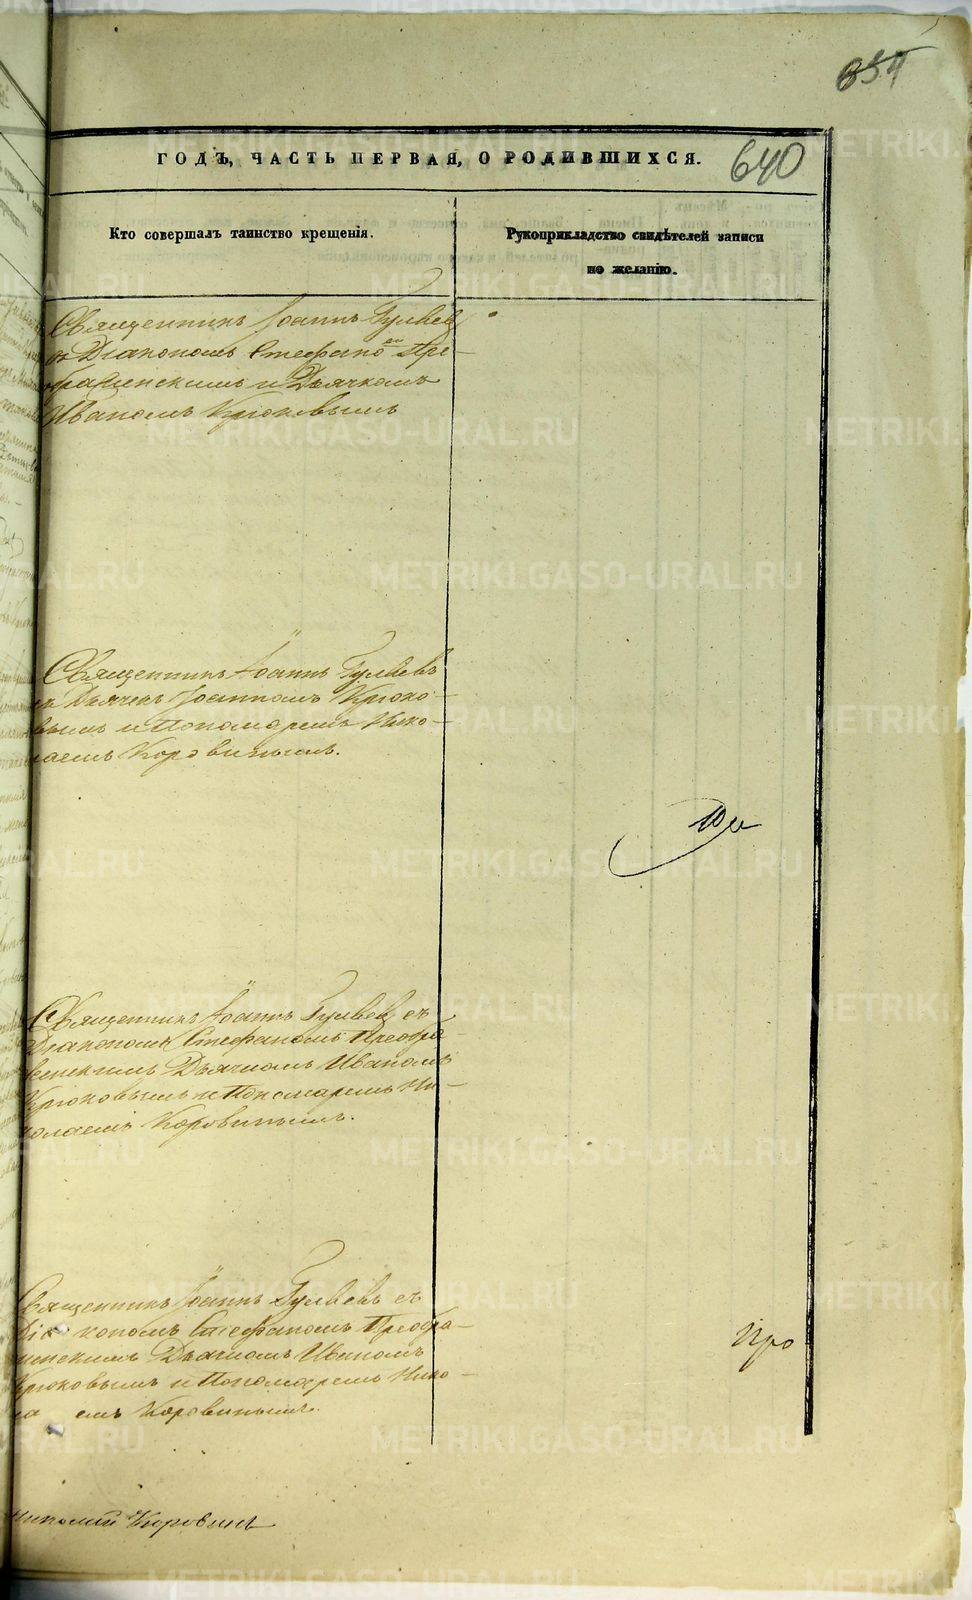 654
640
ГОДЪ, ЧАСТЬ ПЕРВАЯ, О РОДИВШИХСЯ.
Кто совершалъ таинство крещенія.
Рукоприкладство свидѣтелей записи
по желанію.
Священникъ Іоаннъ Гуляевъ
съ Діакономъ Стефаномъ Пре-
ображенскимъ и Дьячкомъ
Иваномъ Крюковымъ
Священникъ Іоаннъ Гуляевъ
Іоанномъ Крюко-
вымъ и Пономаремъ Нико-
лаемъ Коровинымъ.
Священникъ Іоаннъ Гуляевъ съ
Діакономъ Стефаномъ Преобра
женскимъ Дьячкомъ Иваномъ
Крюковымъ и Пономаремъ Ни-
колаемъ Коровинымъ.
Священникъ Іоаннъ Гуляевъ съ
Діакономъ Стефаномъ Преобра-
женскимъ Дьячкомъ Иваномъ
Крюковымъ и Пономаремъ Нико-
лаемъ Коровинымъ.
Про
Николай Коровинъ
METRIKI.GASO-URAL.RU